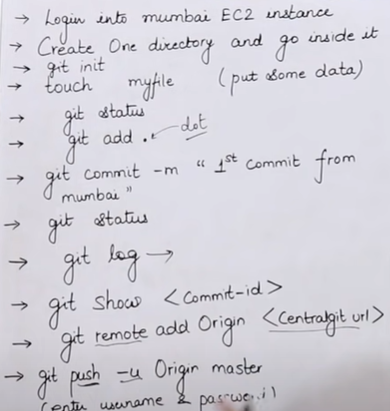 → Login into mumbai EC2 instance
→ Create One directory and go inside it
→ git init
→ touch myfile (put some data)
→ git status
→ git add . ← dot
→ git commit -m " 1st commit from
mumbai "
→ git status
→ git log →
→ git show <Commit-id>
→ git remote add Origin <Centralgit url>
→ git push -u Origin master
(enter username &